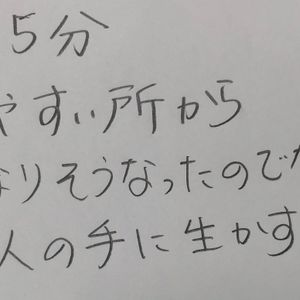 5分
やすい所から
なりそうなったのでか
人の手に生かす